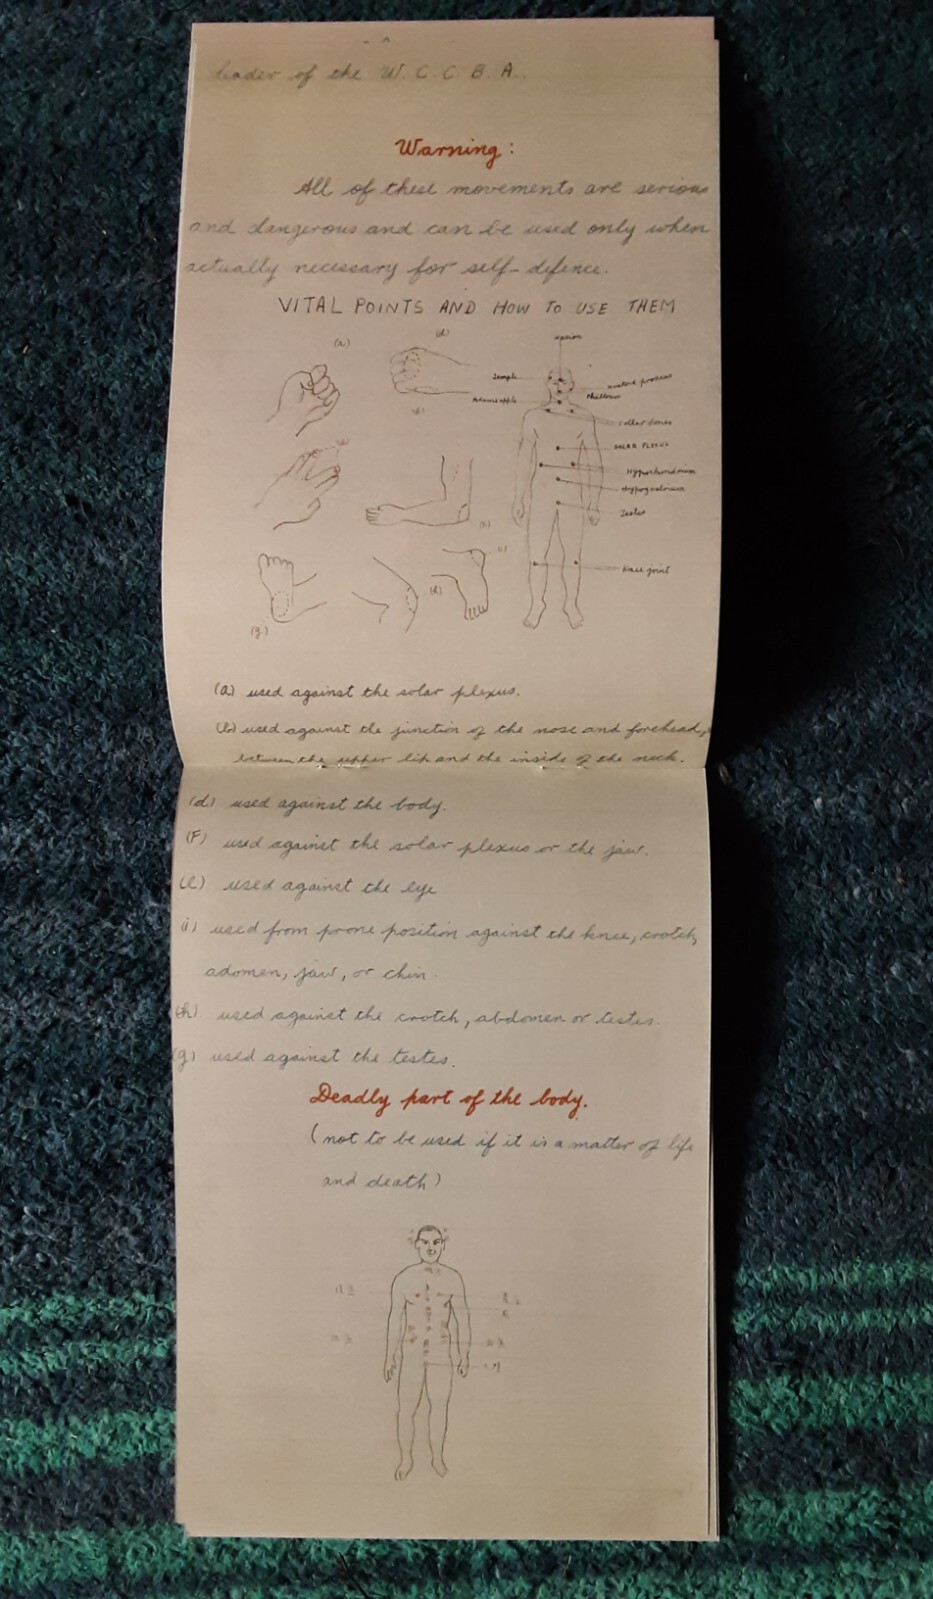 leader of the W. C. C. B. A.
Warning:
All of these movements are serious
and dangerous and can be used only when
actually necessary for self-defence.
VITAL POINTS AND HOW TO USE THEM
(a)
(d)
Temple
mastoid process
Adams apple
Philtrum
collar bones
SOLAR PLEXUS
Hypochondrium
Hypogastrium
Testes
Knee joint
(g)
(a) used against the solar plexus.
(b) used against the junction of the nose and forehead,
between the upper lip and the inside of the neck.
(d) used against the body.
(F) used against the solar plexus or the jaw.
(e) used against the eye
(i) used from prone position against the knee, crotch,
adomen, jaw, or chin.
(h) used against the crotch, abdomen or testes.
(g) used against the testes.
Deadly part of the body.
(not to be used if it is a matter of life
and death)